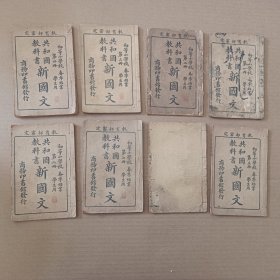 教育部審定
初等小學校 春季始業
學生用
共和國教科書
新國文
商務印書館發行
教育部審定
初等小學校 春季始業
學生用
共和國教科書
新國文
商務印書館發行
教育部審定
初等小學校 春季始業
學生用
共和國教科書
新國文
商務印書館發行
共和國教科書
新國文
商務印書館發行
教育部審定
初等小學校 春季始業
學生用
共和國教科書
新國文
商務印書館發行
教育部審定
初等小學校 春季始業
學生用
共和國教科書
新國文
商務印書館發行
教育部審定
初等小學校 春季始業
學生用
共和國教科書
新國文
商務印書館發行